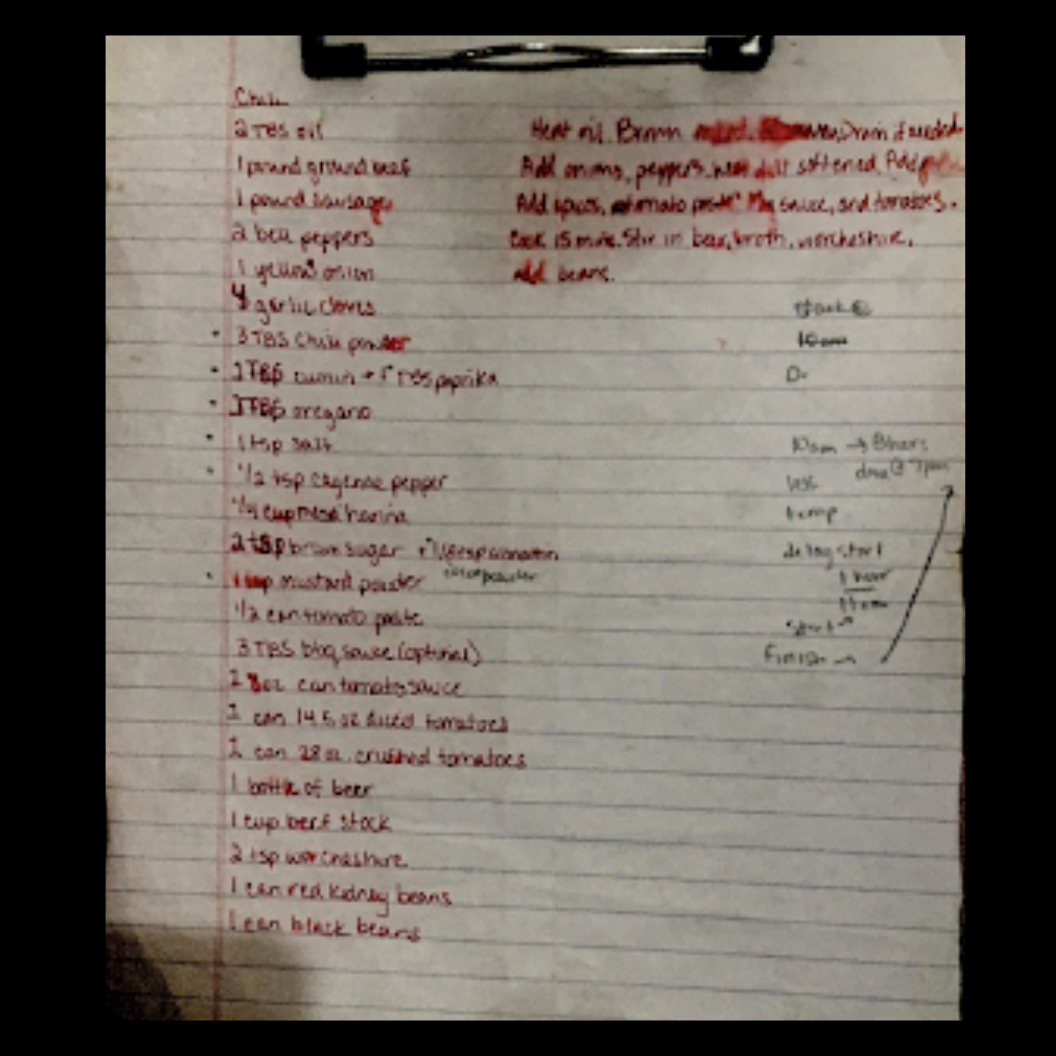 Chili
2 TBS oil
1 pound ground beef
1 pound sausage
2 bell peppers
1 yellow onion
4 garlic cloves
3 TBS Chili powder
1 TBS cumin + 1 TBS paprika
1 TBS oregano
1 tsp salt
1/2 tsp cayenne pepper
1/4 cup masa harina
2 tsp brown sugar + 1/8 tsp cinnamon
1 tsp mustard powder
1/2 can tomato paste
3 TBS bbq sauce (optional)
1 8oz can tomato sauce
1 can 14.5 oz diced tomatoes
1 can 28 oz. crushed tomatoes
1 bottle of beer
1 cup beef stock
2 tsp worcheshire
1 can red kidney beans
1 can black beans
Heat oil. Brown Drain if needed
Add onions, peppers, softened. Add
Add spices, tomato paste, sauce, and tomatoes.
Cook 15 min. Stir in beer, broth, worcheshire,
add beans.
10am
10am → 8 hours
done @ 7pm
less
temp
delay start
1 hour
11am
Start →
Finish →